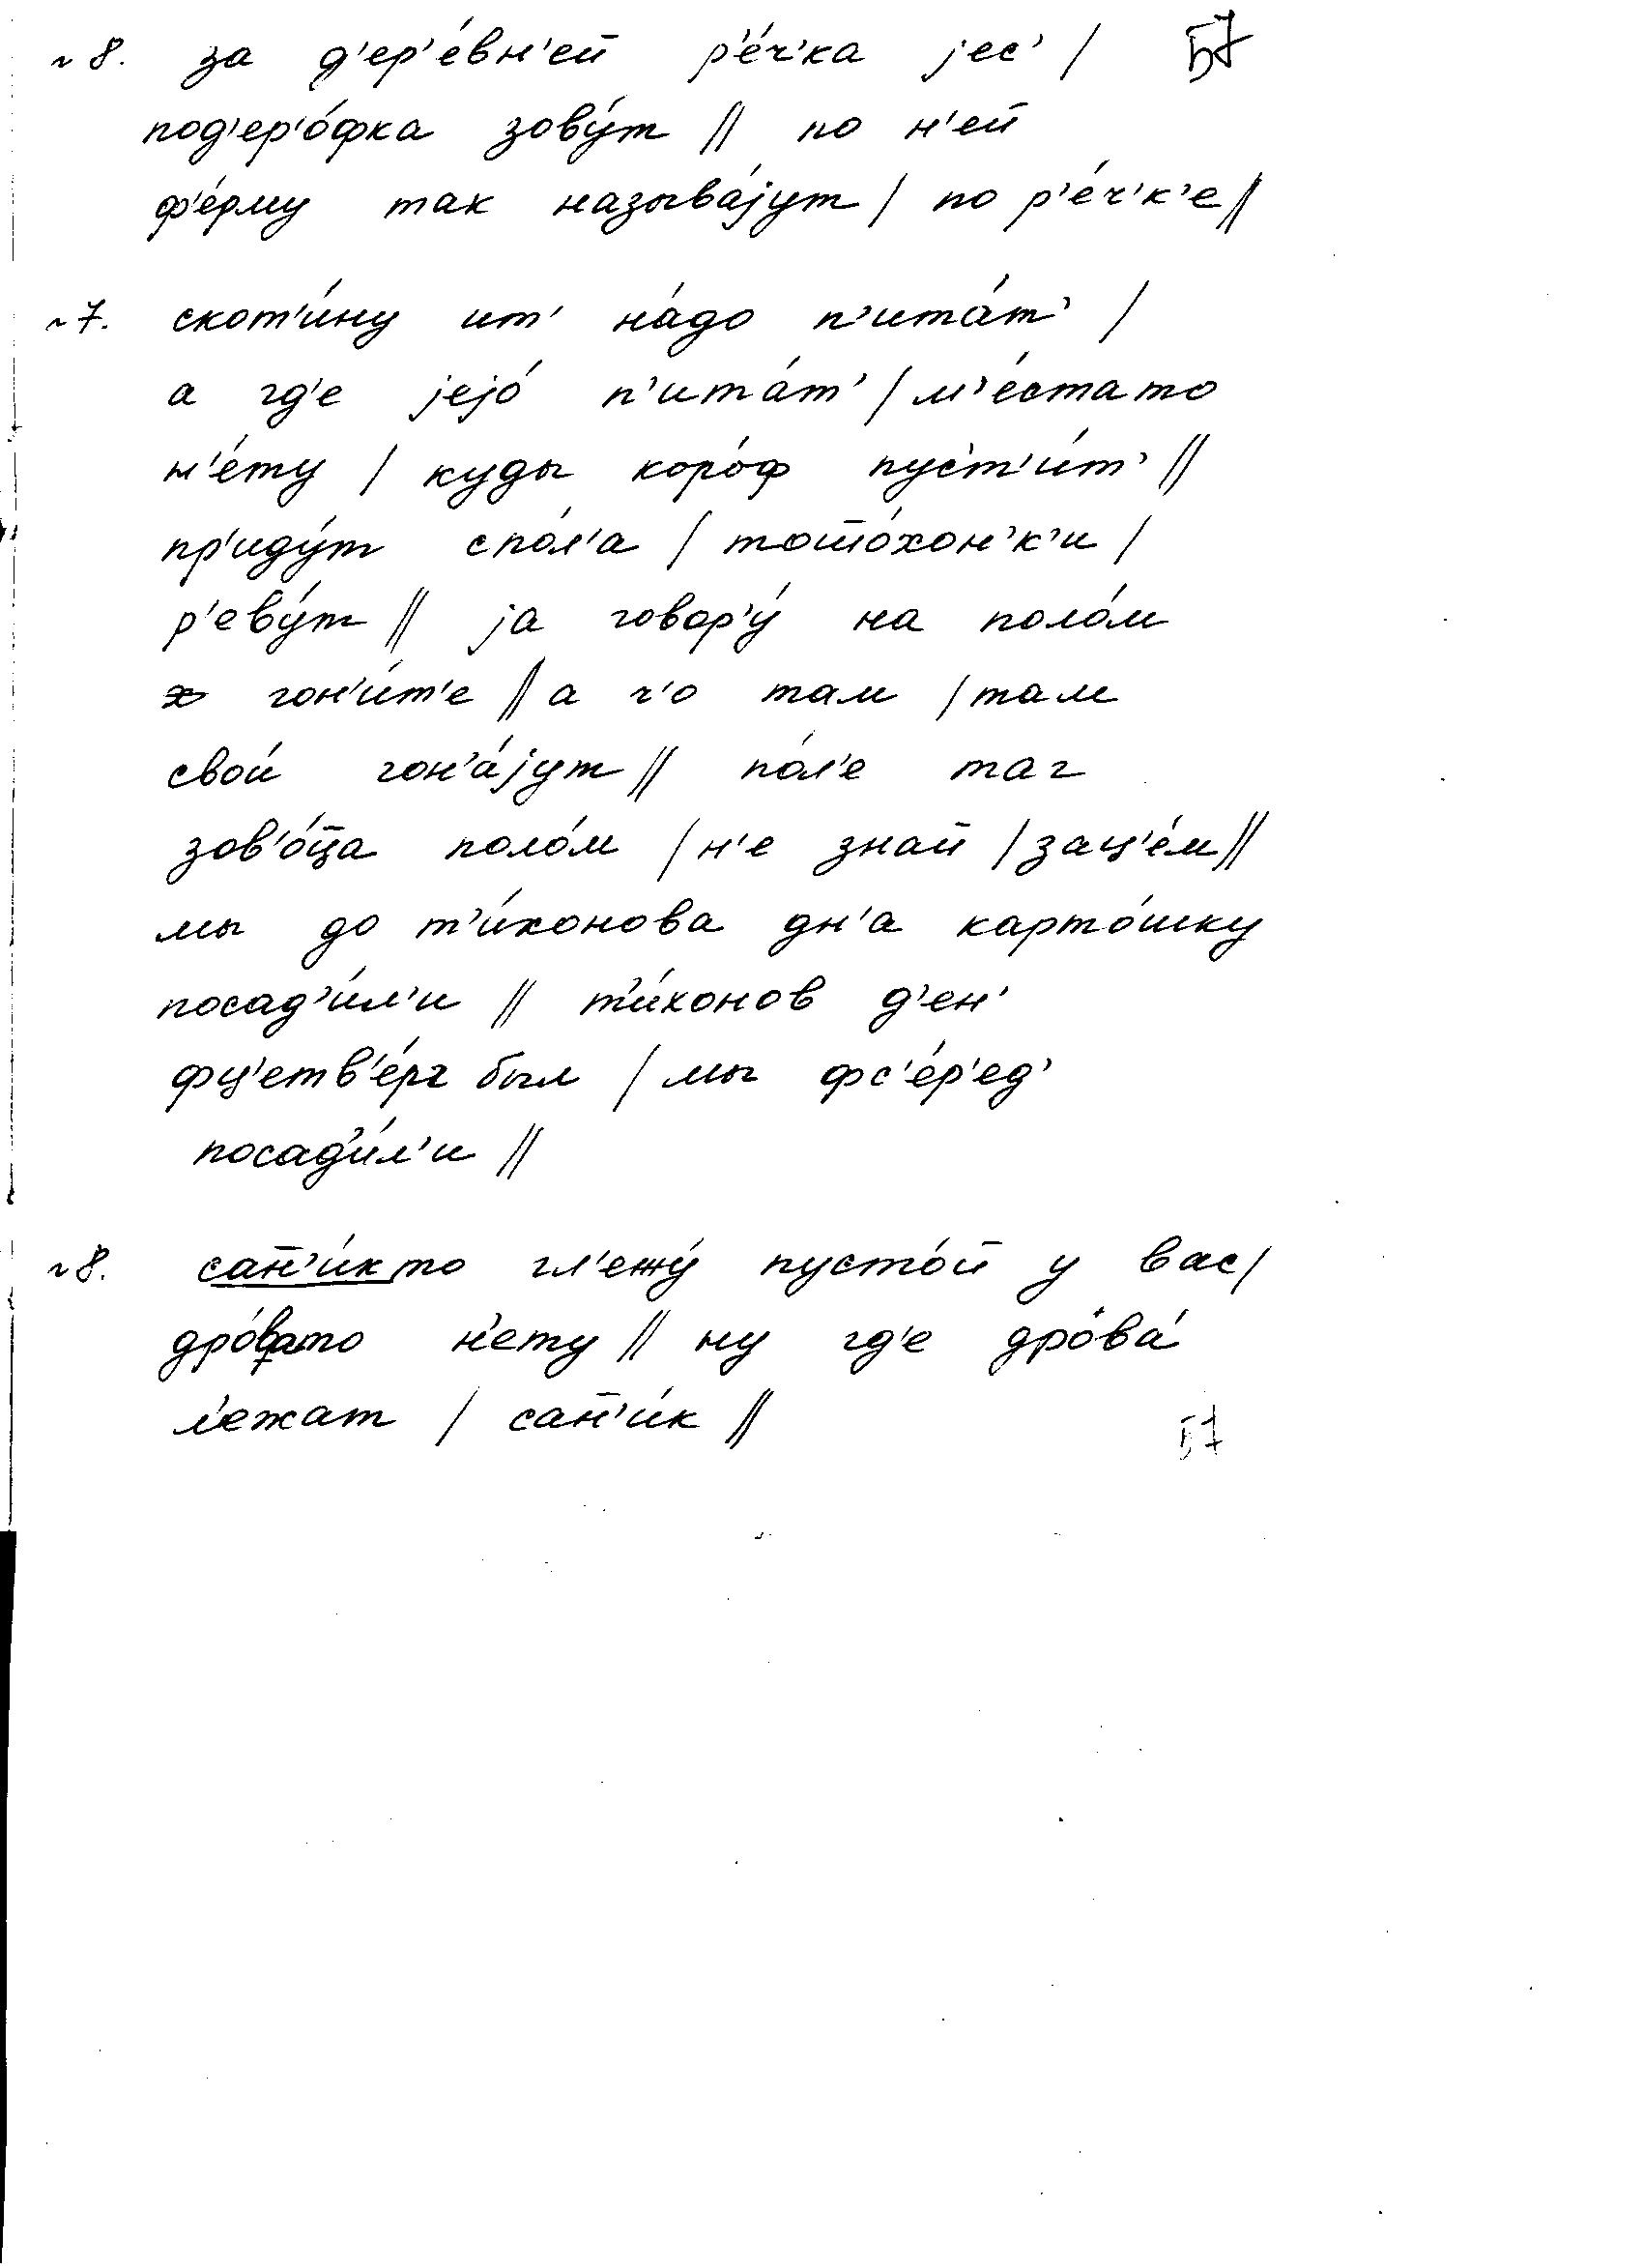 ~8. за д'ер'е́вн'ей р'е́ч'ка јес' / Б7
под'ер'о́фка зову́т // по н'ей
ф'е́рму так называ́јут / по р'е́ч'к'е //
~7. скот'и́ну ит' на́до п'ита́т' /
а гд'е јејо́ п'ита́т' / м'е́стато
н'е́ту / куды коро́ф пус'т'и́т' //
пр'иду́т спо́л'а / тото́хон'к'и /
р'еву́т // ја говор'у́ на поло́м
гон'и́т'е // а ч'о там / там
свои́ гон'а́јут // по́л'е таг
зов'о́ц̄а поло́м / н'е знай / зац'е́м //
мы до т'и́хонова дн'а карто́шку
посад'и́л'и // т'и́хонов д'ен'
фц'етв'е́рг был / мы фс'е́р'ед'
посад'и́л'и //
~8. сан̄'и́кто гл'ежу́ пусто́й у вас /
дро́вато н'ету // ну гд'е дрова́
л'ежат / сан̄'и́к //
Б7